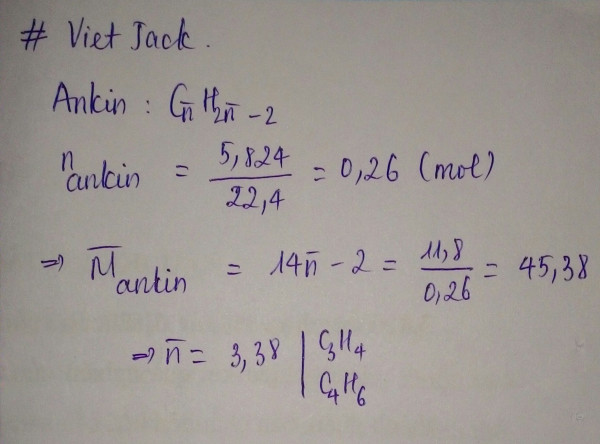 # Viet Jack.
Ankin : Cn̄H2n̄-2
nankin = 5,824/22,4 = 0,26 (mol)
=> M̄ankin = 14n̄ - 2 = 11,8/0,26 = 45,38
=> n̄ = 3,38 | C3H4
C4H6